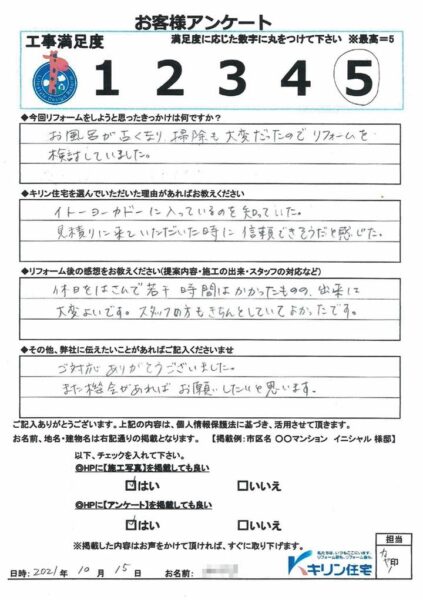 お客様アンケート
工事満足度
満足度に応じた数字に丸をつけて下さい ※最高=5
1 2 3 4 5
◆今回リフォームをしようと思ったきっかけは何ですか?
お風呂が古くなり、掃除も大変だったのでリフォームを
検討していました。
◆キリン住宅を選んでいただいた理由があればお教えください
イトーヨーカドーに入っているのを知っていた。
見積りに来ていただいた時に信頼できそうだと感じた。
◆リフォーム後の感想をお教えください(提案内容・施工の出来・スタッフの対応など)
休日をはさんで若干時間はかかったものの、出来は
大変よいです。スタッフの方もきちんとしていてよかったです。
◆その他、弊社に伝えたいことがあればご記入くださいませ
ご対応ありがとうございました。
また機会があればお願いしたいと思います。
ご記入ありがとうございます。上記の内容は、個人情報保護法に基づき、活用させて頂きます。
お名前、地名・建物名は右記通りの掲載となります。 【掲載例:市区名 〇〇マンション イニシャル 様邸】
以下、チェックを入れて下さい。
◎HPに【施工写真】を掲載しても良い
☑はい □いいえ
◎HPに【アンケート】を掲載しても良い
☑はい □いいえ
※掲載した内容はお声をかけて頂ければ、すぐに取り下げます。
担当
印
キリン住宅
日時: 2021年 10月 15日 お名前: